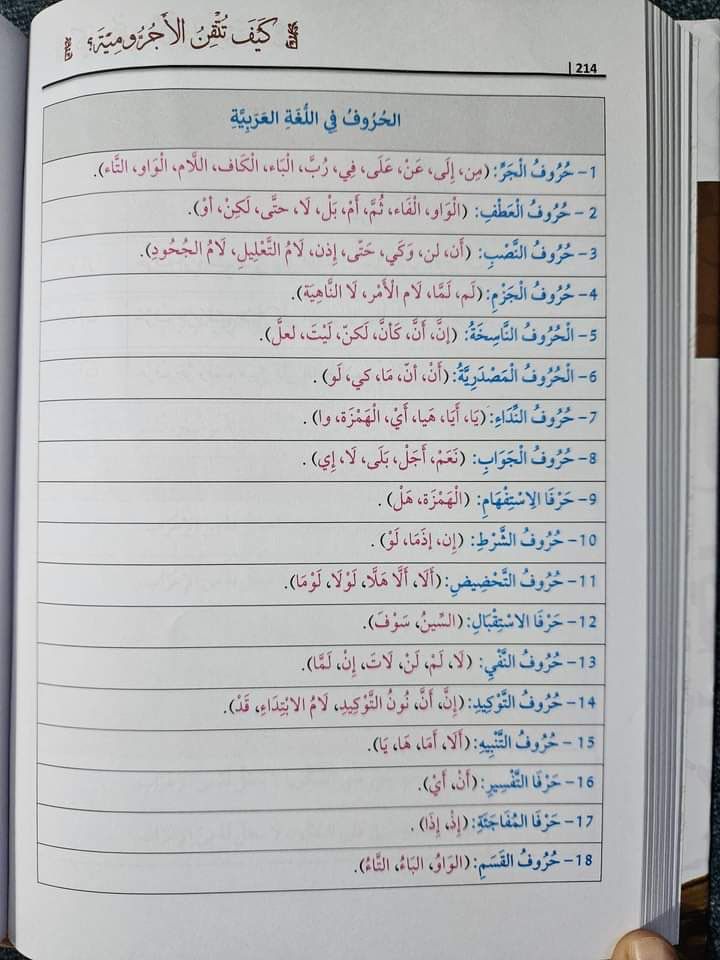 كَيْفَ تُتْقِنُ الأَجُرُّومِيَّة؟
214
الحُرُوفُ فِي اللُّغَةِ العَرَبِيَّةِ
1- حُرُوفُ الْجَرِّ: (مِن، إِلَى، عَنْ، عَلَى، فِي، رُبَّ، الْبَاء، الْكَاف، اللَّام، الْوَاو، التَّاء).
2 - حُرُوفُ الْعَطْفِ: (الْوَاو، الْفَاء، ثُمَّ، أَمْ، بَلْ، لَا، حتَّى، لَكِنْ، أوْ).
3- حُرُوفُ النَّصْبِ: (أَن، لن، وَكَي، حَتّى، إِذن، لَامُ التَّعْلِيلِ، لَامُ الجُحُودِ).
4- حُرُوفُ الْجَزْمِ: (لَم، لَمَّا، لَام الْأَمْر، لَا النَّاهِيَة).
5- الْحُرُوفُ النَّاسِخَةُ: (إنَّ، أَنَّ، كَأنَّ، لَكنّ، لَيْتَ، لعلَّ).
6- الْحُرُوفُ الْمَصْدَرِيَّةُ: (أَنْ، أنّ، مَا، كي، لَو) .
7- حُرُوفُ النِّدَاءِ: (يَا، أَيَا، هَيا، أَيْ، الْهَمْزَة، وا) .
8- حُرُوفُ الْجَوَابِ: (نَعَمْ، أَجَلْ، بَلَى، لَا، إِي) .
9- حَرْفَا الِاسْتِفْهَامِ: (الْهَمْزَة، هَلْ) .
10- حُرُوفُ الشَّرْطِ: (إِن، إِذمَا، لَوْ) .
11- حُرُوفُ التَّحْضِيضِ: (أَلَا، أَلَّا هَلَّا، لَوْلَا، لَوْمَا).
12- حَرْفَا الاسْتِقْبَالِ: (السِّينُ، سَوْفَ).
13- حُرُوفُ النَّفْيِ: (لَا، لَمْ، لَنْ، لَاتَ، إِنْ، لَمَّا).
14- حُرُوفُ التَّوْكِيدِ: (إِنَّ، أَنَّ، نُونُ التَّوْكِيدِ، لَامُ الابْتِدَاءِ، قَدْ).
15 - حُرُوفُ التَّنْبِيهِ: (أَلَا، أَمَا، هَا، يَا).
16- حَرْفَا التَّفْسِيرِ: (أَنْ، أَيْ).
17- حَرْفَا المُفَاجَئَةِ: (إِذْ، إِذَا) .
18- حُرُوفُ القَسَمِ: (الوَاوُ، البَاءُ، التَّاءُ).